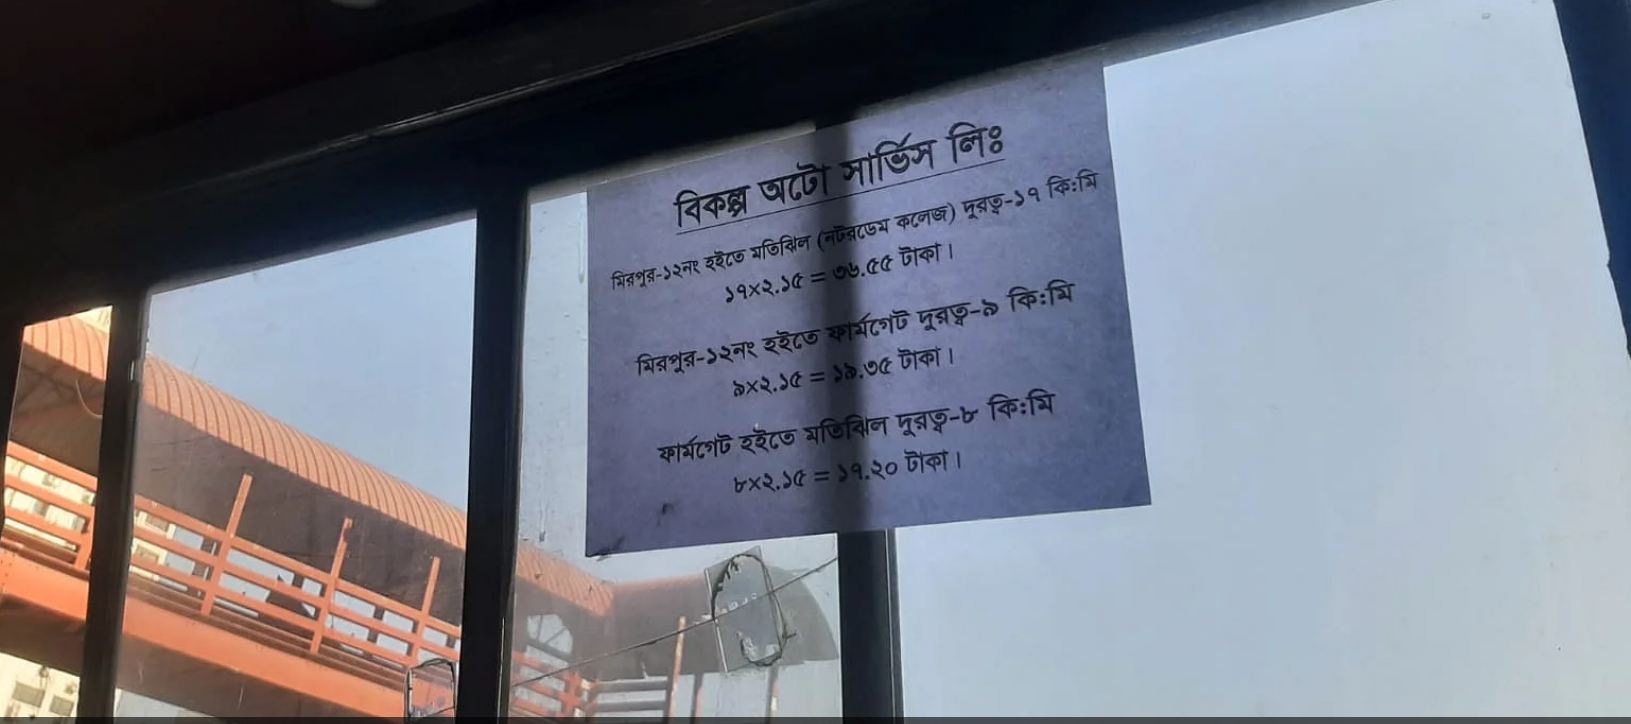 বিকল্প অটো সার্ভিস লিঃ
মিরপুর-১২নং হইতে মতিঝিল (নটরডেম কলেজ) দূরত্ব-১৭ কি:মি
১৭×২.১৫ = ৩৬.৫৫ টাকা।
মিরপুর-১২নং হইতে ফার্মগেট দূরত্ব-৯ কি:মি
৯×২.১৫ = ১৯.৩৫ টাকা।
ফার্মগেট হইতে মতিঝিল দূরত্ব-৮ কি:মি
৮×২.১৫ = ১৭.২০ টাকা।